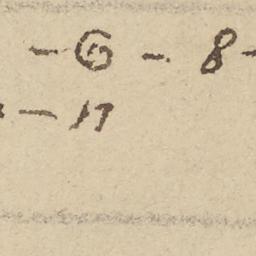 - 6 - 8 -
- 17